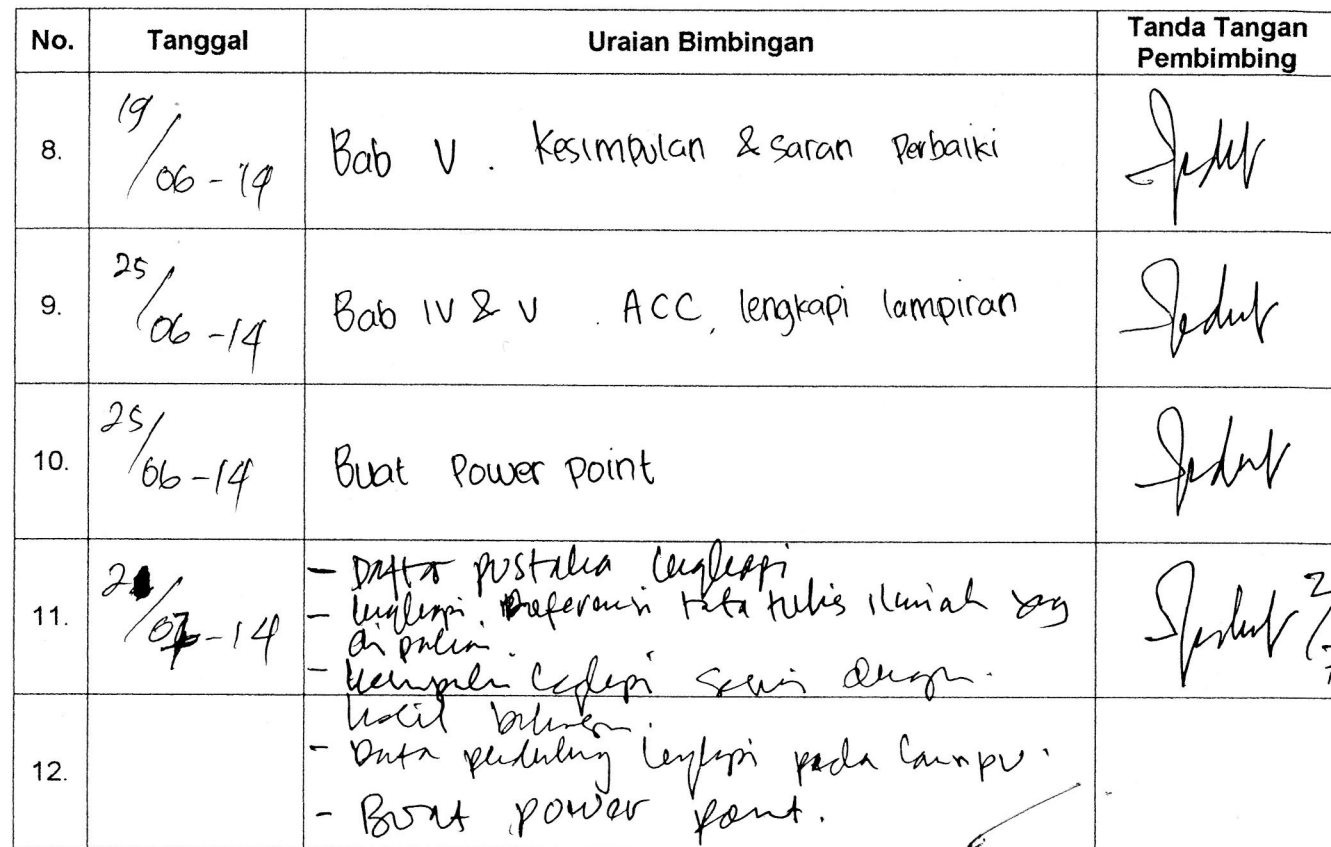 No. Tanggal Uraian Bimbingan Tanda Tangan Pembimbing
8. 19/06-14 Bab V. Kesimpulan & saran Perbaiki
9. 25/06-14 Bab IV & V. ACC, lengkapi lampiran
10. 25/06-14 Buat Power Point
11. 2/07-14 - Daftar pustaka lengkapi
- lengkapi Referensi tata tulis ilmiah yg
di pakai.
- lengkapi sesuai dengan.
hasil
12. - Data pendukung lengkapi pada
- Buat power point.